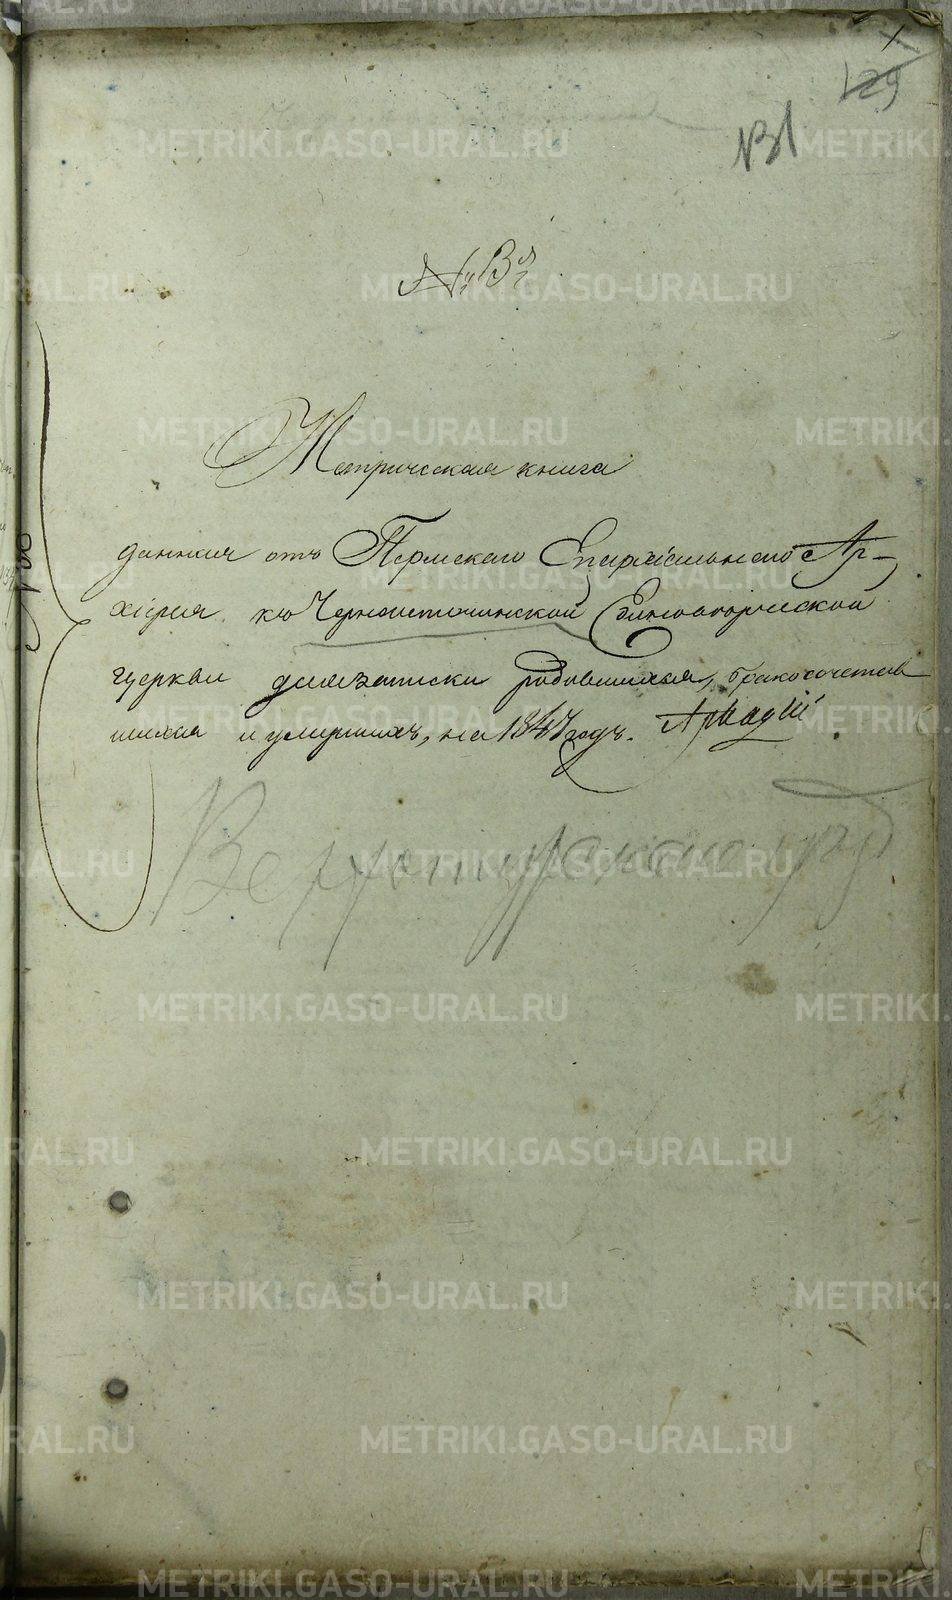 1
129
№ 1
№ 13й
Метрическая книга
данная отъ Пермскаго Епархіальнаго Ар-
хіерея къ Черноисточинской Единоверческой
церкви для записки родившихся, бракосочетав
шихся и умершихъ, на 1847 годъ. Аркадій
Верхотурскаго у
METRIKI.GASO-URAL.RU